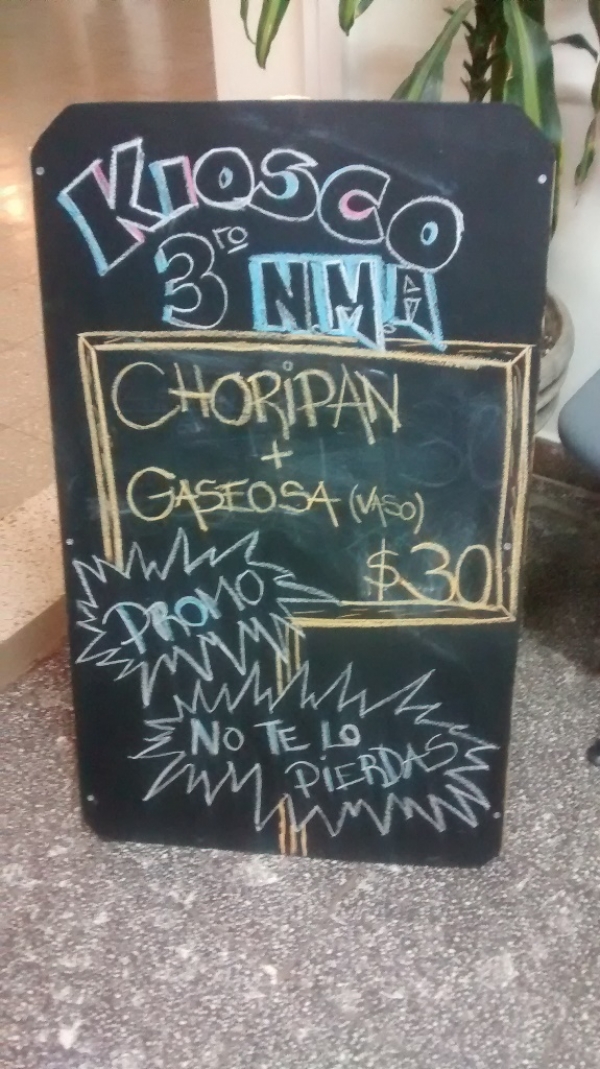 KIOSCO
3ro NMA
CHORIPAN
+
GASEOSA (VASO)
$30
PROMO
NO TE LO
PIERDAS